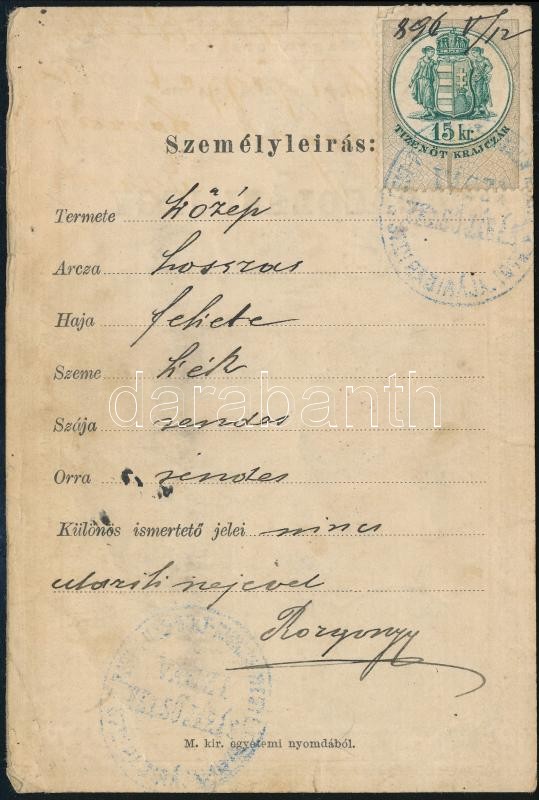 896 V/12
15 kr.
TIZENÖT KRAJCZÁR
Személyleirás:
Termete közép
Arcza hosszas
Haja fekete
Szeme kék
Szája rendes
Orra rendes
darabanth
Különös ismertető jelei nincs
utazik nejével
Rozgonyi
M. kir. egyetemi nyomdából.